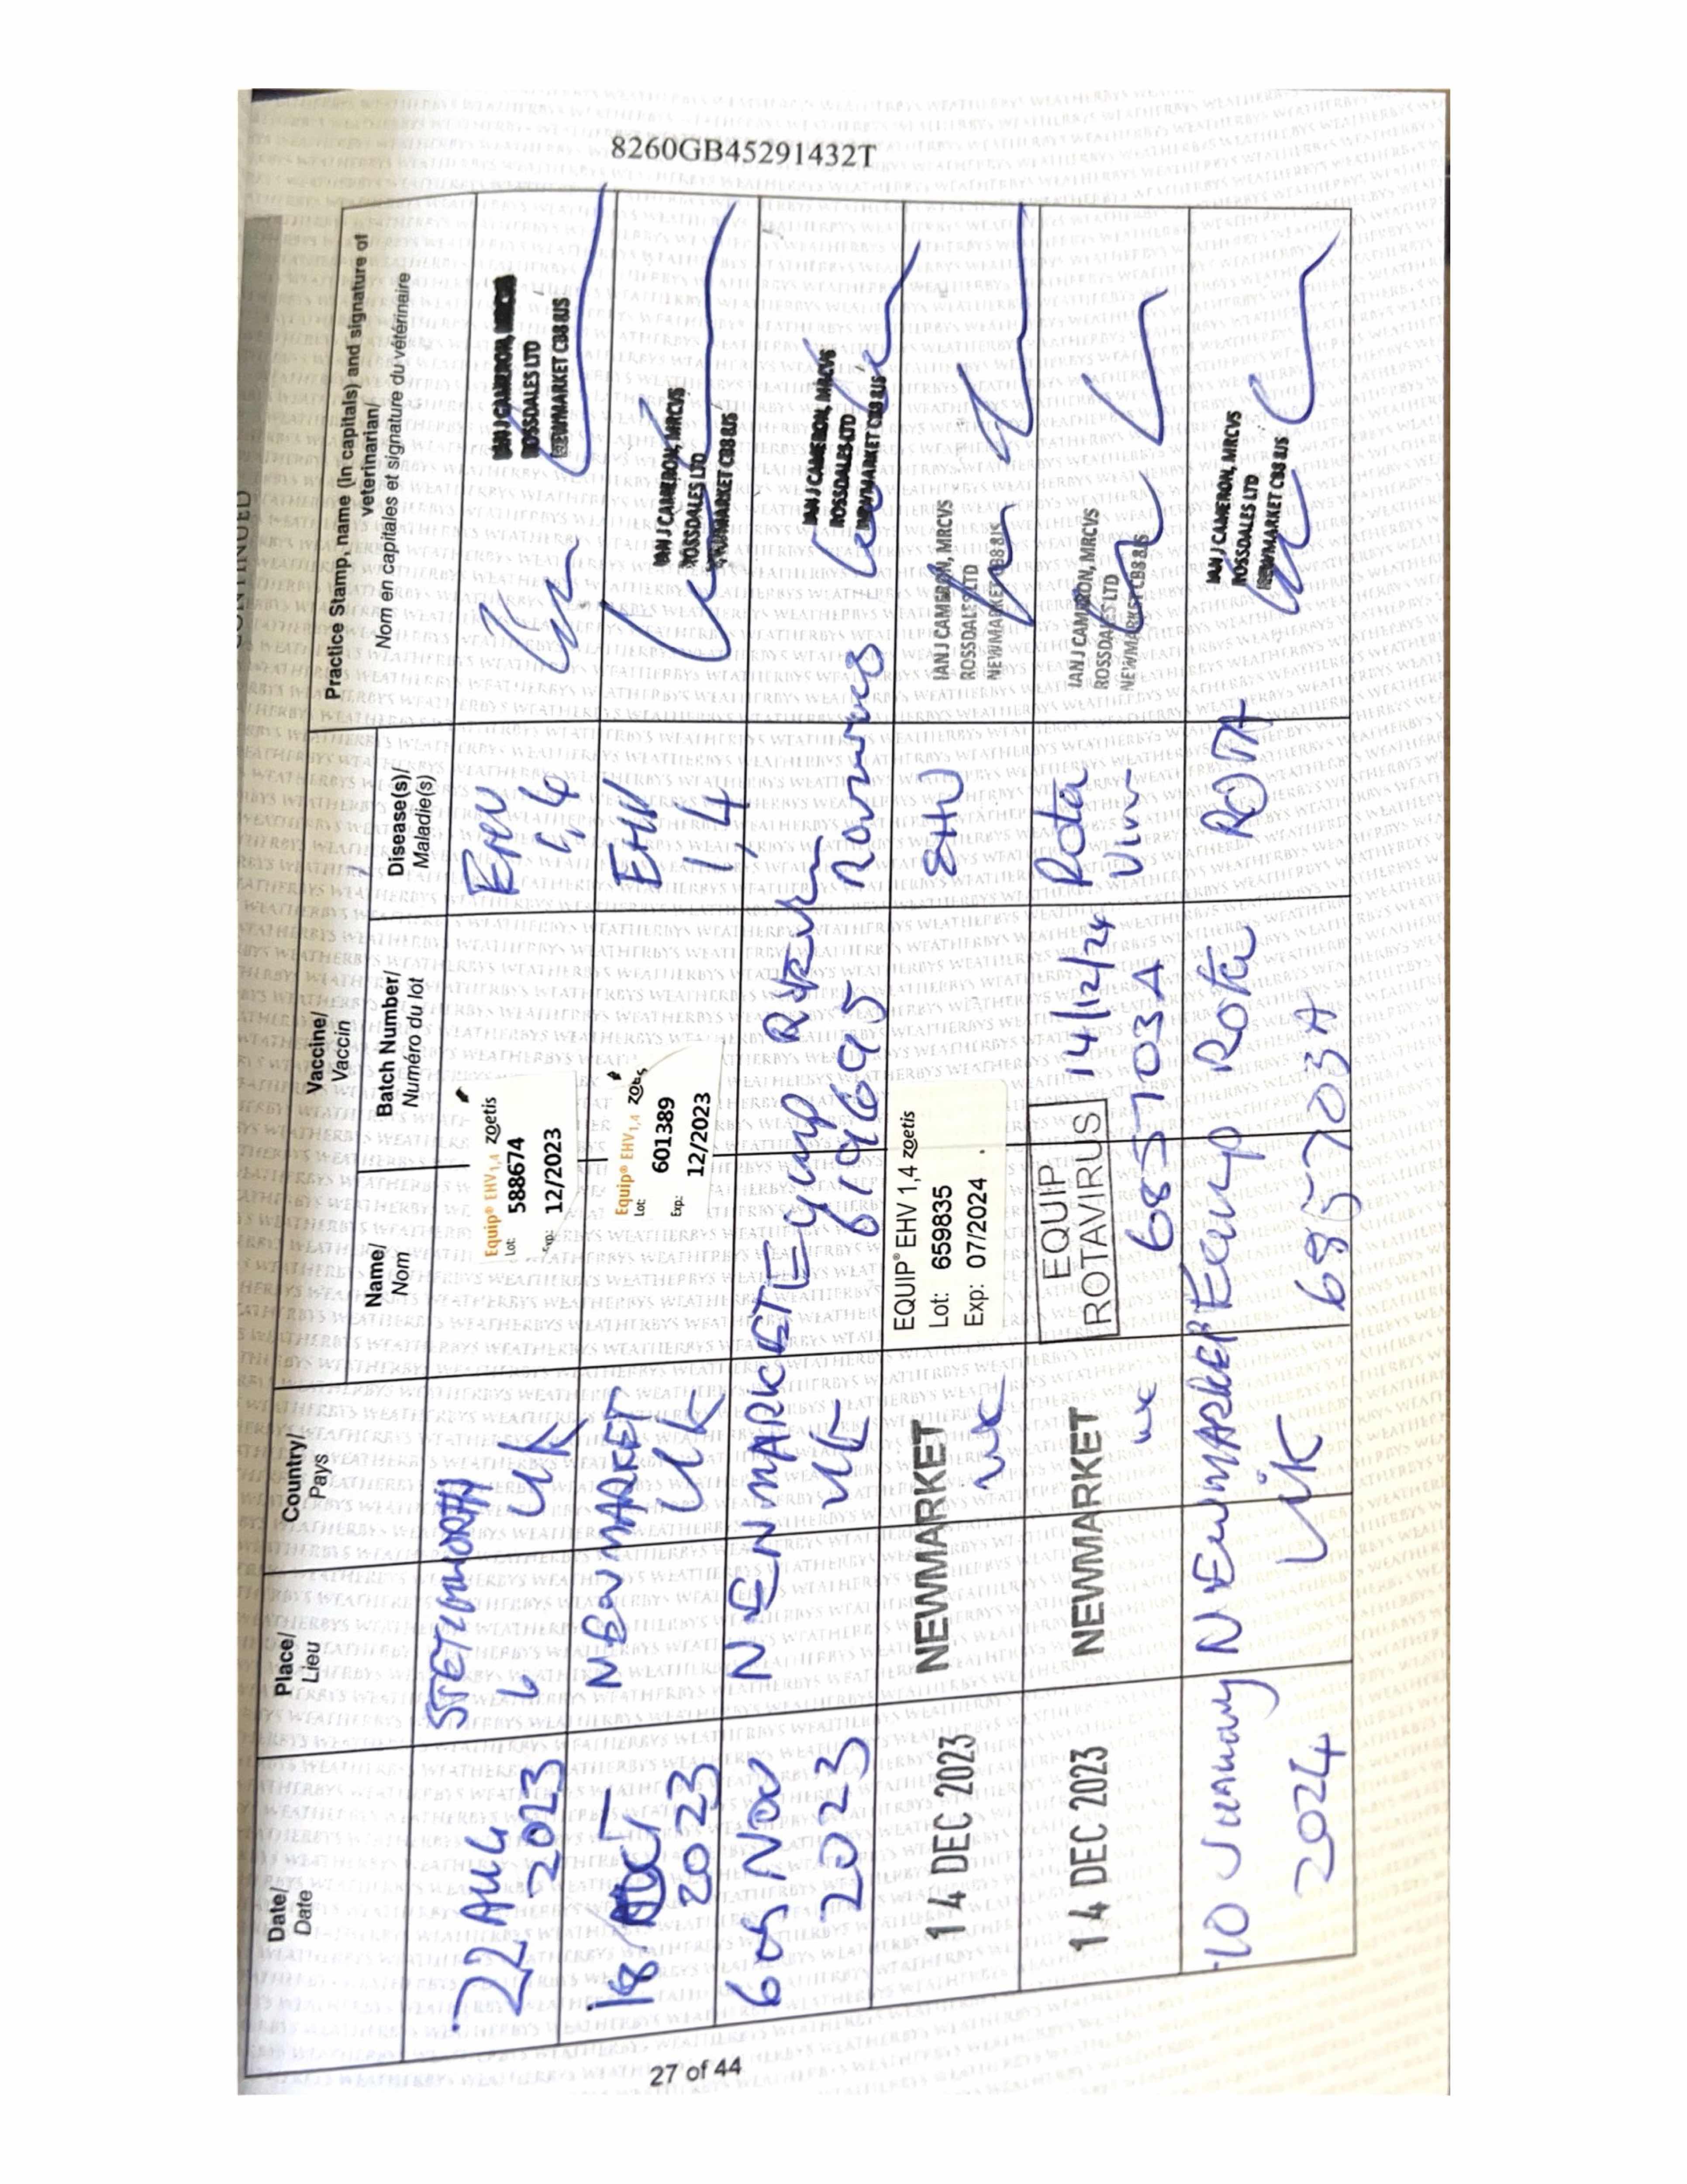 CONTINUED
Date/
Date
Place/
Lieu
Country/
Pays
Vaccine/
Vaccin
Name/
Nom
Batch Number/
Numéro du lot
Disease(s)/
Maladie(s)
Practice Stamp, name (in capitals) and signature of
veterinarian/
Nom en capitales et signature du vétérinaire
22 AUG
2023
STETCHWORTH
UK
Equip® EHV 1,4 zoetis
Lot: 588674
Exp: 12/2023
EHV
1,4
IAN J CAMERON, MRCVS
ROSSDALES LTD
NEWMARKET CB8 8JS
18 OCT
2023
NEWMARKET
UK
Equip® EHV 1,4 zoetis
Lot: 601389
Exp: 12/2023
EHV
1,4
IAN J CAMERON, MRCVS
ROSSDALES LTD
NEWMARKET CB8 8JS
6 Nov
2023
NEWMARKET
UK
Equip
619695
Rotavirus
IAN J CAMERON, MRCVS
ROSSDALES LTD
NEWMARKET CB8 8JS
14 DEC 2023
NEWMARKET
UK
EQUIP® EHV 1,4 zoetis
Lot: 659835
Exp: 07/2024
EHV
IAN J CAMERON, MRCVS
ROSSDALES LTD
NEWMARKET CB8 8JS
14 DEC 2023
NEWMARKET
UK
EQUIP
ROTAVIRUS
14/12/24
685703A
Rota
Virus
IAN J CAMERON, MRCVS
ROSSDALES LTD
NEWMARKET CB8 8JS
10 January
2024
NEWMARKET
UK
Equip Rota
685703A
ROTA
IAN J CAMERON, MRCVS
ROSSDALES LTD
NEWMARKET CB8 8JS
27 of 44
8260GB45291432T